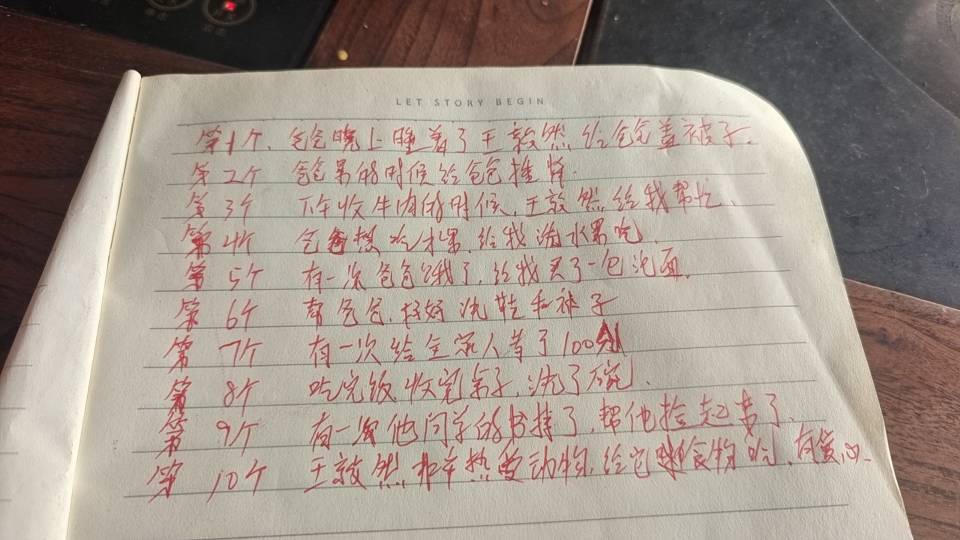 LET STORY BEGIN
第1个、爸爸晚上睡着了王敦然给爸爸盖被子.
第2个 爸爸累的时候给爸爸捶背.
第3个 下午收牛肉的时候.王敦然给我帮忙.
第4个 爸爸想吃水果.给我洗水果吃.
第5个 有一次爸爸饿了,给我买了一包泡面.
第6个 帮爸爸.妈妈洗鞋和袜子
第7个 有一次给全家人考了100分
第8个 吃完饭收完桌子,洗了碗.
第9个 有一次他同学的书掉了,帮他捡起来了.
第10个 王敦然非常热爱动物,给它食物吃,有爱心.